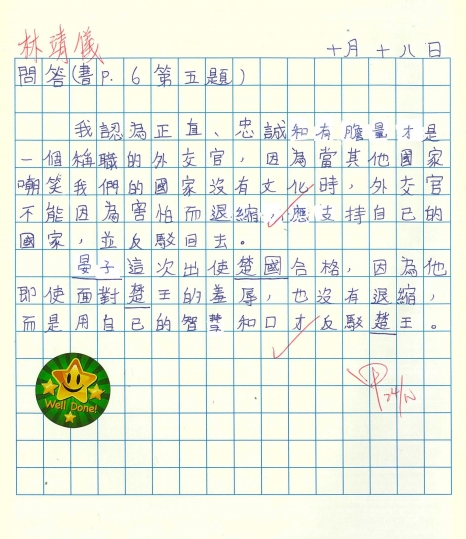 林靖儀
十月十八日
問答(書P.6第五題)
我認為正直、忠誠和有膽量才是
一個稱職的外交官，因為當其他國家
嘲笑我們的國家沒有文化時，外交官
不能因為害怕而退縮，應支持自己的
國家，並反駁回去。
晏子這次出使楚國合格，因為他
即使面對楚王的羞辱，也沒有退縮，
而是用自己的智慧和口才反駁楚王。
Well Done!
甲
24/10